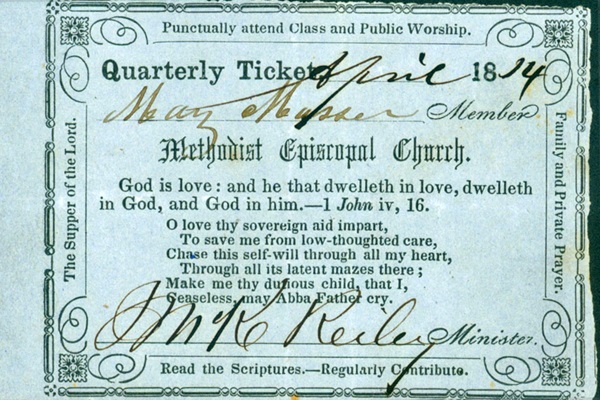 Punctually attend Class and Public Worship.
Quarterly Ticket April 18
May Musser Member
Methodist Episcopal Church.
God is love: and he that dwelleth in love, dwelleth
in God, and God in him.—1 John iv, 16.
O love thy sovereign aid impart,
To save me from low-thoughted care,
Chase this self-will through all my heart,
Through all its latent mazes there;
Make me thy duteous child, that I,
Ceaseless, may Abba Father cry.
McK Reiley Minister.
Read the Scriptures.—Regularly Contribute.
The Supper of the Lord.
Family and Private Prayer.